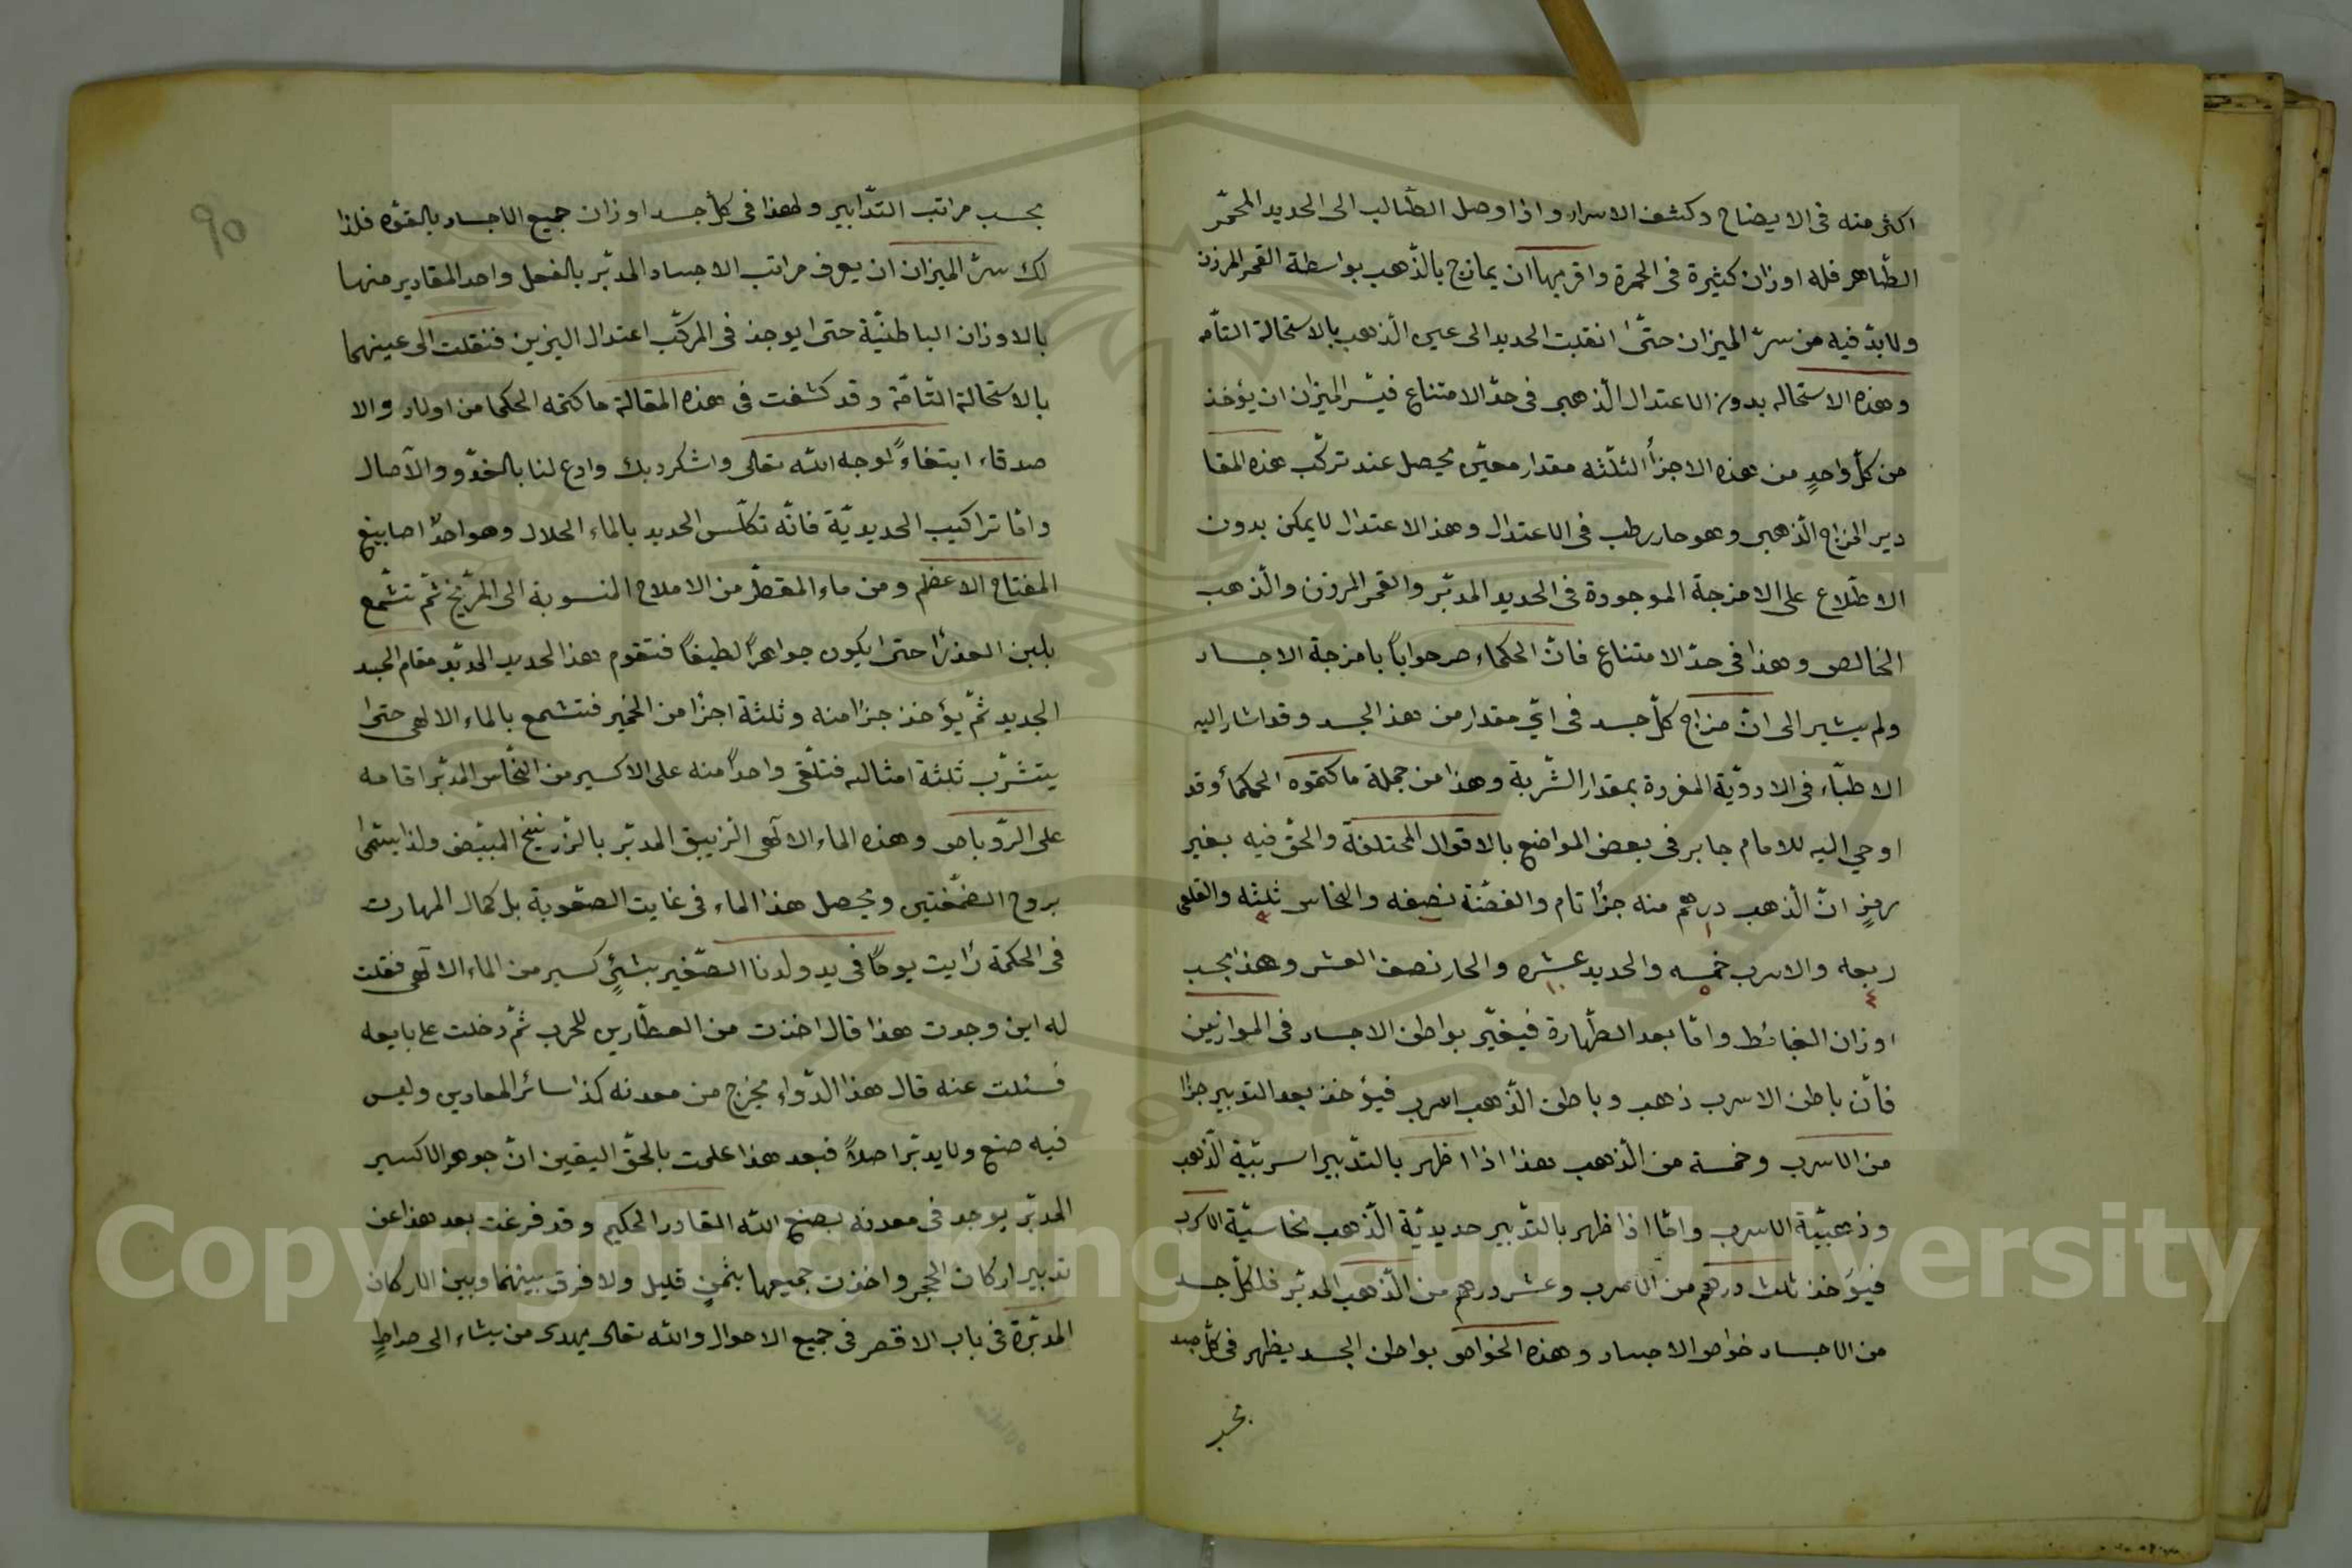 اكثر منه فى الايضاح وكشف الاسرار واذا وصل الطّالب الى الحديد المحمّر
الطّاهر فله اوزان كثيرة فى الحمرة واقربها ان يمازج بالذّهب بواسطة القمر المرزن
ولابدّ فيه من سرّ الميزان حتّى انقلبت الحديد الى عين الذّهب بالاستحالة التامّه
وهذه الاستحاله بدون الاعتدال الذّهبى فى حدّ الامتناع فسّر الميزان ان يؤخذ
من كلّ واحدٍ من هذه الاجزأ الثلثه مقدار معيّن يحصل عند تركّب هذه المقا
دير المزاج الذّهبى وهو حار رطب فى الاعتدال وهذ الاعتدال لا يمكن بدون
الاطّلاع على الامزجة الموجودة فى الحديد المدبّر والقمر المرزن والذّهب
الخالص وهذا فى حدّ الامتناع فانّ الحكماء صرحوا باً بامزجة الاجساد
ولم يشير الى انّ مزاج كلّ جسد فى اىّ مقدار من هذ الجسد وقد اشار اليه
الاطبّاء فى الادويّة المفردة بمقدار الشّربة وهذا من جملة ما كتموه الحكمأ وقد
اوحى اليه للامام جابر فى بعض المواضع بالاقوال المختلفة والحقّ فيه بغير
رمزٍ انّ الذّهب درهم منه جزأ تام والفضّة نصفه والنحاس ثلثه والقلعى
١ ٣
ربعه والاسرب خمسه والحديد عشره والحار نصف العشر وهذا بحسب
٤ ٥ ١٠
اوزان الغائط وامّا بعد الطّهارة فيغيّر بواطن الاجساد فى الموازين
فانّ باطن الاسرب ذهب وباطن الذّهب اسرب فيؤخذ بعد التدبير جزأ
من الاسرب وخمسة من الذّهب هذا اذا اظهر بالتدّبير اسربيّة الذّهب
وذهبيّة الاسرب وامّا اذا ظهر بالتدّبير حديديّة الذّهب نحاسيّة الاسرب
فيؤخذ ثلث درهم من الاسرب وعشر درهم من الذّهب المدبّر فلكلّ جسد
من الاجساد خواص الاجساد وهذه الخواص بواطن الجسد يظهر فى كلّ جسد
بحسب
٩٥
بحسب مراتب التدّابير ولهذا فى كلّ جسد اوزان جميع الاجساد بالقوّه فلذا
لك سرّ الميزان ان يعرف مراتب الاجساد المدبّر بالفعل واحد المقادير منها
بالاوزان الباطنيّة حتى يوجد فى المركّب اعتدال النيرين فنقلت الى عينهما
بالاستحالة التّامّة وقد كشفت فى هذه المقالة ما كتمه الحكما من اولاد والا
صدقاء ابتغاءً لوجه الله تعالى واشكر ربك وادع لنا بالغدّو والآصال
وامّا تراكيب الحديديّة فانّه تكلّس الحديد بالماء الحلال وهو احدّ اصابيغ
المفتاح الاعظم ومن ماء المقطّر من الاملاح المنسوبة الى المرّيخ ثمّ تشّمع
بلبن العذرا حتى ايكون جواهراً لطيفاً فتقوم هذ الحديد المدبّر مقام الجسد
الجديد ثمّ يؤخذ جزأ منه وثلثة اجزأ من الخمير فتشمع بالماء الالهى حتى
يتشرّب ثلثة امثاله فتلّقى واحداً منه على الاكسير من النحّاس المدبّر اقامه
على الرّوباص وهذه الماء الالهى الزيبق المدبّر بالزّرنيخ المبيّض ولذا يسّمى
بروح الصّمغتين ويحصل هذ الماء فى غايت الصعّوبة بل كمال المهارت
فى الحكمة رايت يوماً فى يد ولدنا الصّغير بشيٍ كسير من الماء الالهى فقلت
له اين وجدت هذا قال اخذت من العطّارين للحرب ثمّ دخلت على بايعه
فسئلت عنه قال هذ الدّواء يخرج من معدنه كذا سائر المعادين وليس
فيه صنع ولا يدبّر اصلاً فبعد هذا علمت بالحقّ اليقين انّ جوهر الاكسير
المدبّر يوجد فى معدنه بصنع الله القادر الحكيم وقد فرغت بعد هذا عن
تدبير اركان الحجر واخذت جميعها بثمنٍ قليل ولا فرق بينهما وبين الاركان
المدبّرة فى باب الاقصر فى جميع الاحوال والله تعالى يهدى من يشاء الى صراطٍ
Copyright © King Saud University